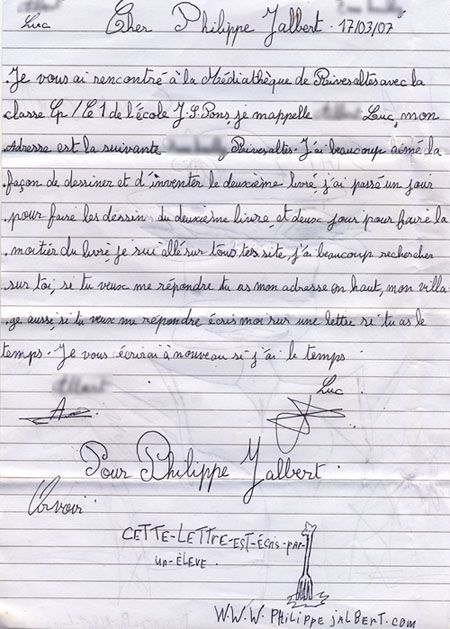 Luc Cher Philippe Jalbert. 17/03/07
Je vous ai rencontré à la Médiathèque de Rivesaltes avec la
classe Cp/CE1 de l'école J.S.Pons je mappelle Luc, mon
Adresse est la suivante Rivesaltes. J'ai beaucoup aimé la
façon de dessiner et d'inventer le deuxième livre, j'ai passé un jour
pour faire les dessins du deuxième livre, et deux jours pour faire la
moitier du livre, je sui allé sur tous tes site, j'ai beaucoup rechercher
sur toi, si tu veux me répondre tu as mon adresse en haut, mon villa
ge aussi, si tu veux me répondre écris moi sur une lettre si tu as le
temps. Je vous écrirai à nouveau si j'ai le temps.
Luc
A
Pour Philippe Jalbert.
Orvoir.
CETTE-LETTRE-EST-ÉCRIS-PAR-
UN-ÉLEVE.
WWW.PHiLiPPEjALBERT.com